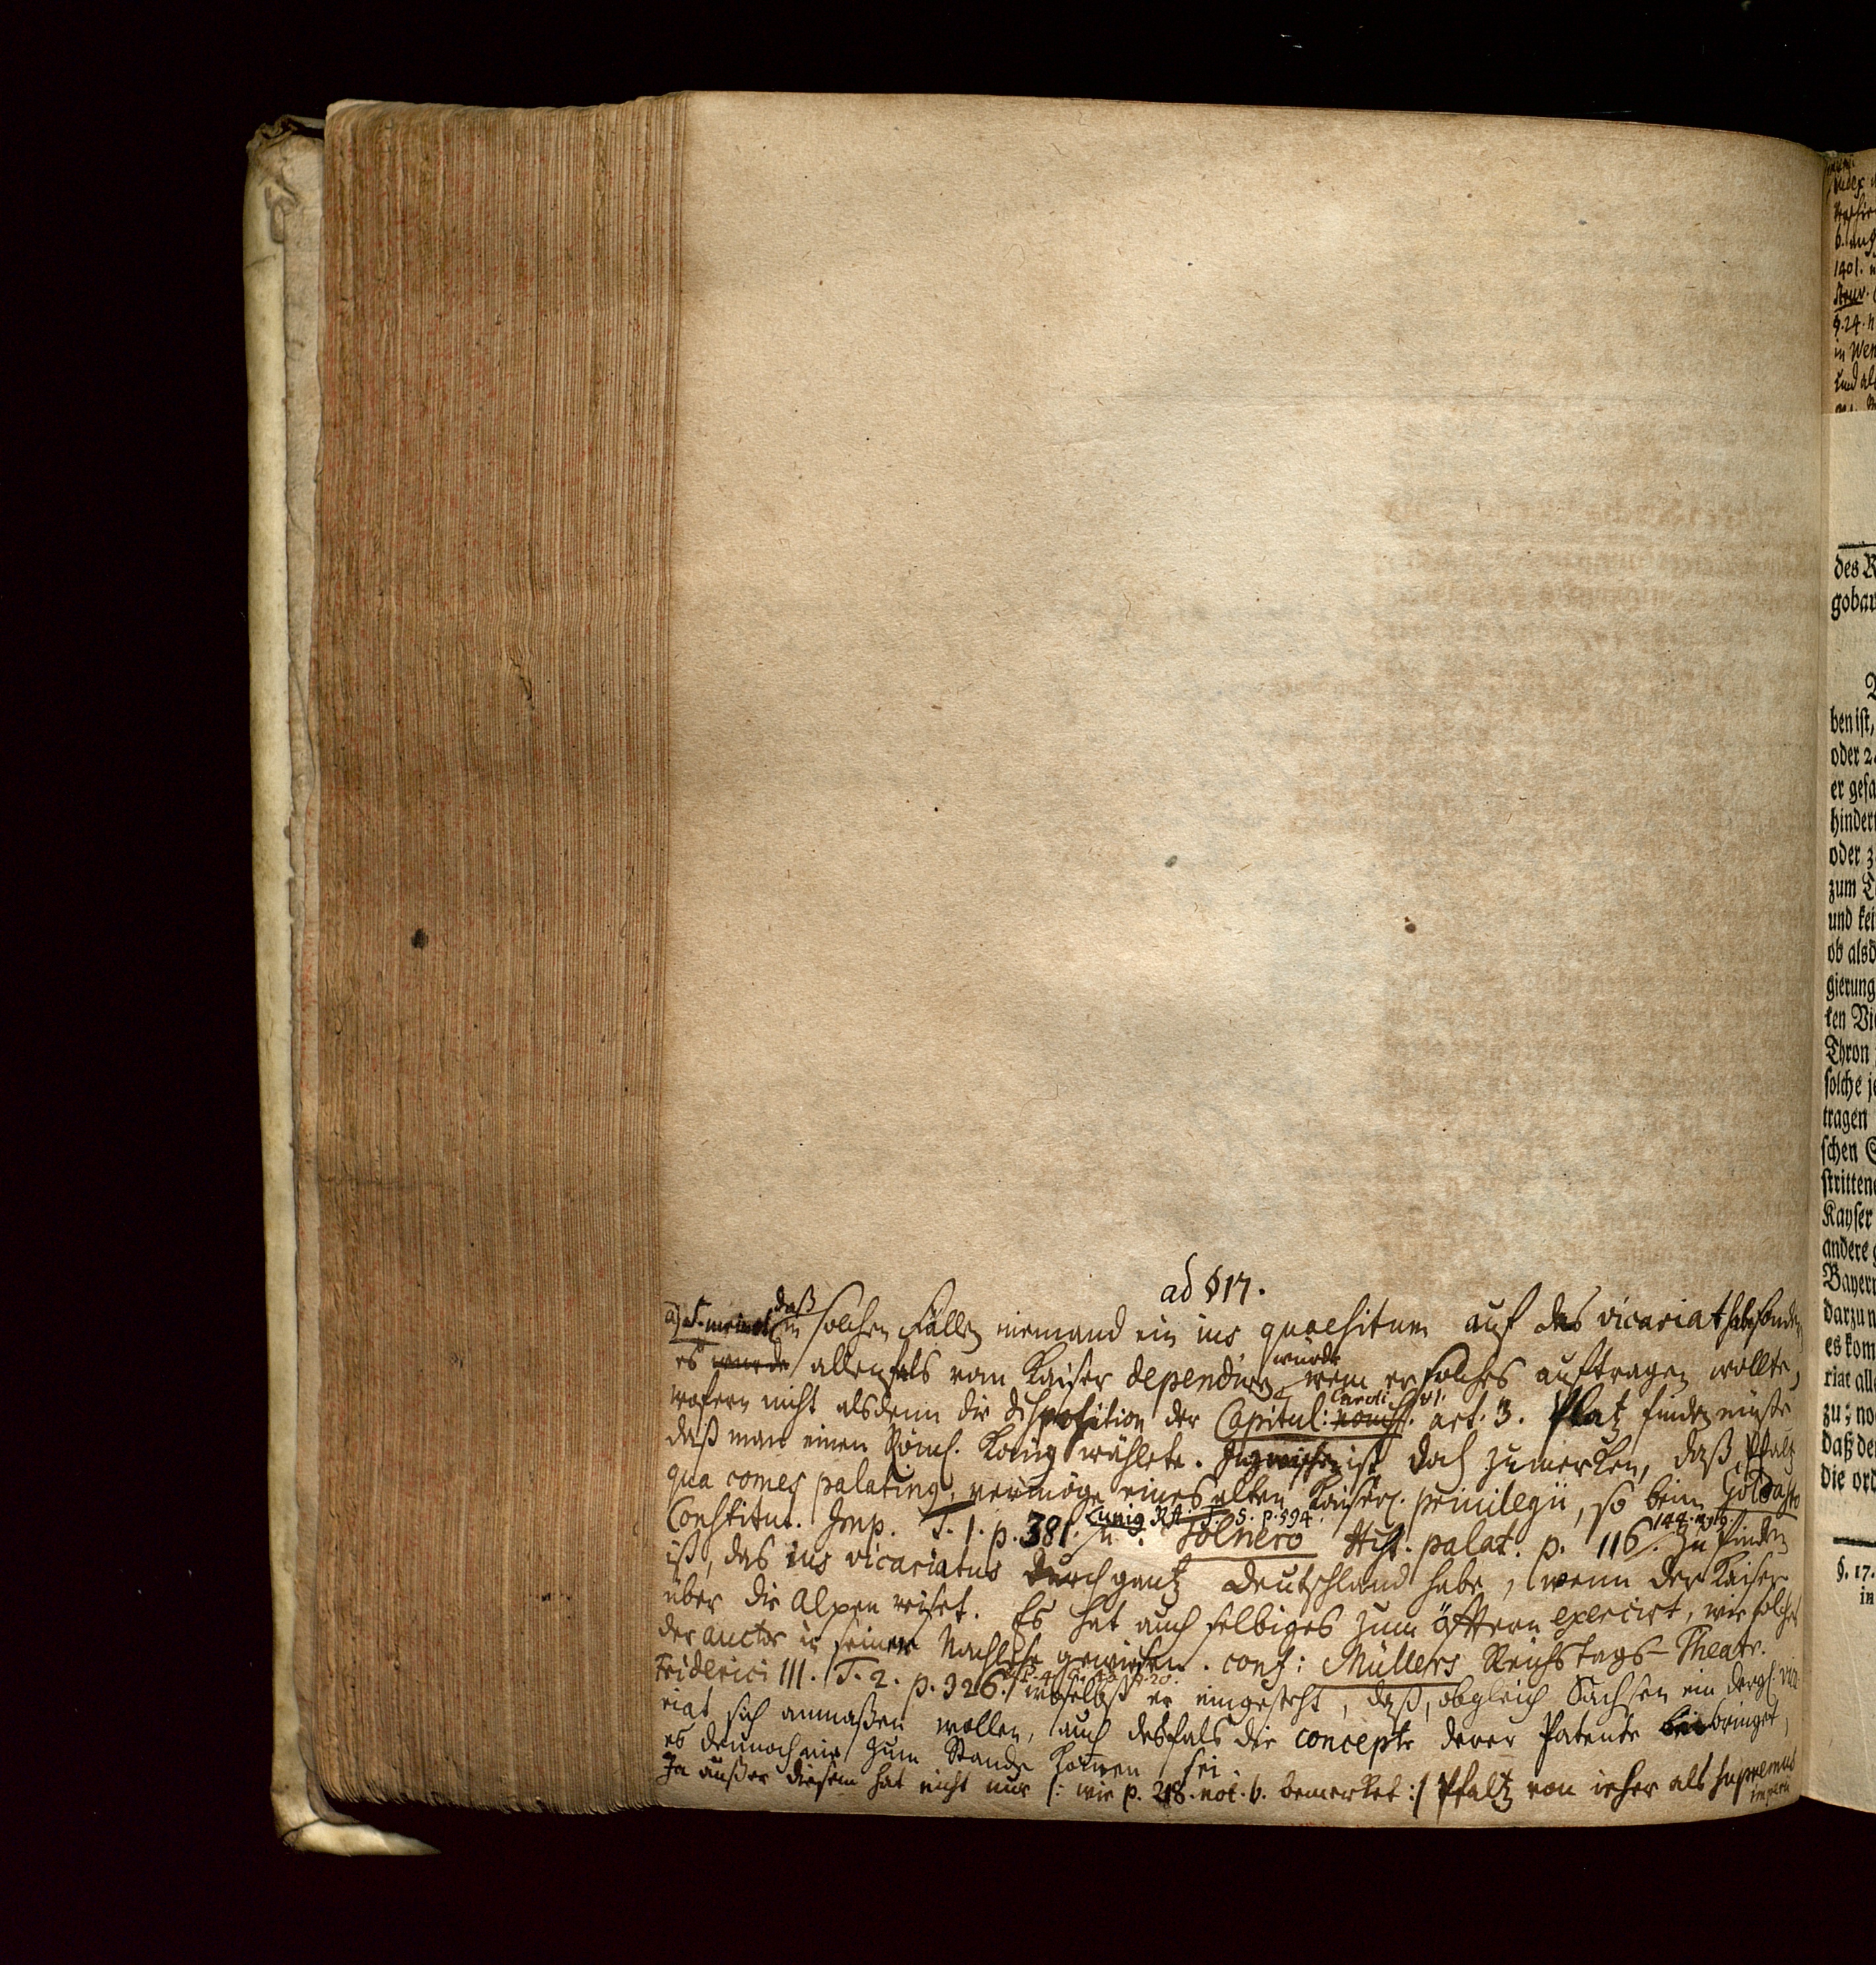 ad § 17.
a) T. meinet daß in solchen Fällen niemand ein ius quaesitum auf das vicariat habe sondern
es wurde allenfals vom Kaiser dependiren würde wem er solches auftragen wollte,
wofern nicht alsdenn die disposition der Capitul: Caroli VI. art. 3. Platz finden müste
daß man einen Röms. König wählete. Inzwischen ist doch zu merken, daß Pfaltz
qua comes palatinus, vermöge eines alten Kaiserl. privilegii, so beim Goldasto
Constitut. Imp. T. 1. p. 381. Lünig RA. T. 5. p. 594. u. Tolnero Hist. palat. p. 116. 144. zu finden
ist, das ius vicariatus durch gantz Deutschland habe, wenn der Kaiser
über die Alpen reiset. Es hat auch selbiges zum öfftern exercirt, wie solches
der auctor in seiner Nachlese gewiesen. conf: Müllers Reichstags-Theatr.
Friderici III. T. 2. p. 326. woselbst er eingesteht, daß, obgleich Sachsen ein dergl. vica-
riat sich anmaßen wollen, auch desfals die concepte derer Patente beibringet,
es dennoch nie zum Stande kommen sei.
Ja außer diesem hat nicht nur /: wie p. 218. not. b. bemerket :/ Pfaltz von ieher als supremus
imperii
1401.
§. 24.
in Wen
und
des K
gobar
ben ist,
oder 2
er gefa
hinder
oder z
zum T
und kei
ob alsd
gierung
ken Vi
Thron
solche je
tragen
schen S
stritten
Kayser
andere g
Bayern
darzu n
es kom
riat all
zu; no
daß de
die ord
§. 17.
in